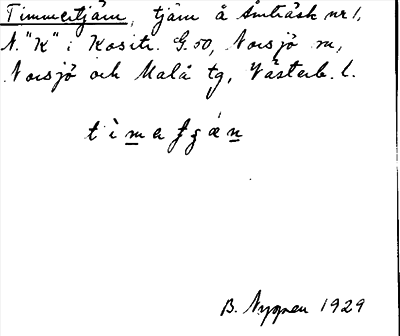 Timmertjärn, tjärn å Åmträsk nr 1,
N. "K" i Kositr. G.50, Norsjö sn,
Norsjö och Malå tg, Västerb. l.
tìmertjän
B. Nygren 1929